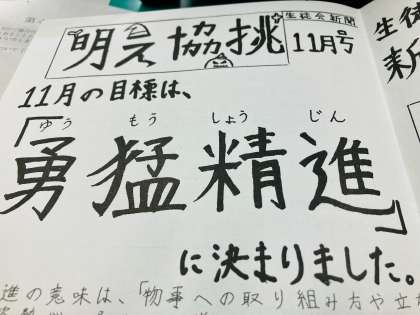 生徒会新聞
明㒵協挑
11月号
11月の目標は、
ゆう もう しょう じん
「勇猛精進」
に決まりました。
進の意味は、「物事への取り組み方や立
生徒
新